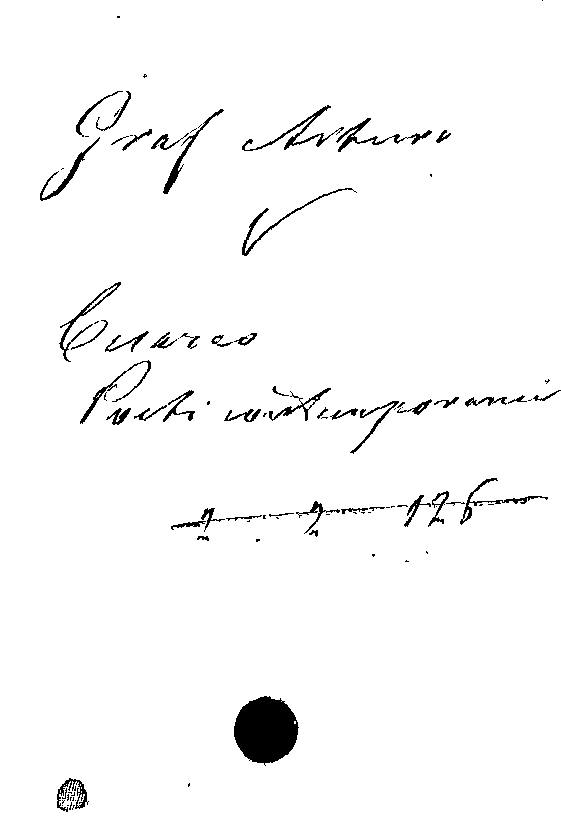 Graf Arturo
V
Cuarco
Poeti contemporanei
2 2 126